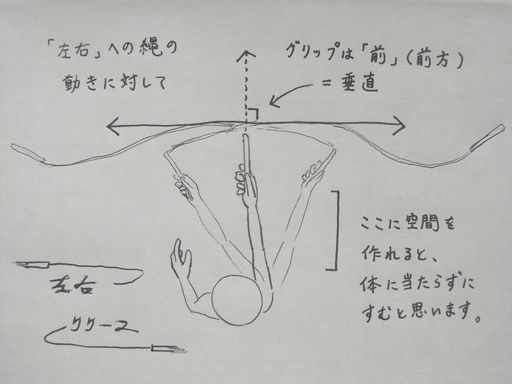 「左右」への縄の
動きに対して
グリップは「前」(前方)
=垂直
ここに空間を
作れると、
体に当たらずに
すむと思います。
左右
リリース